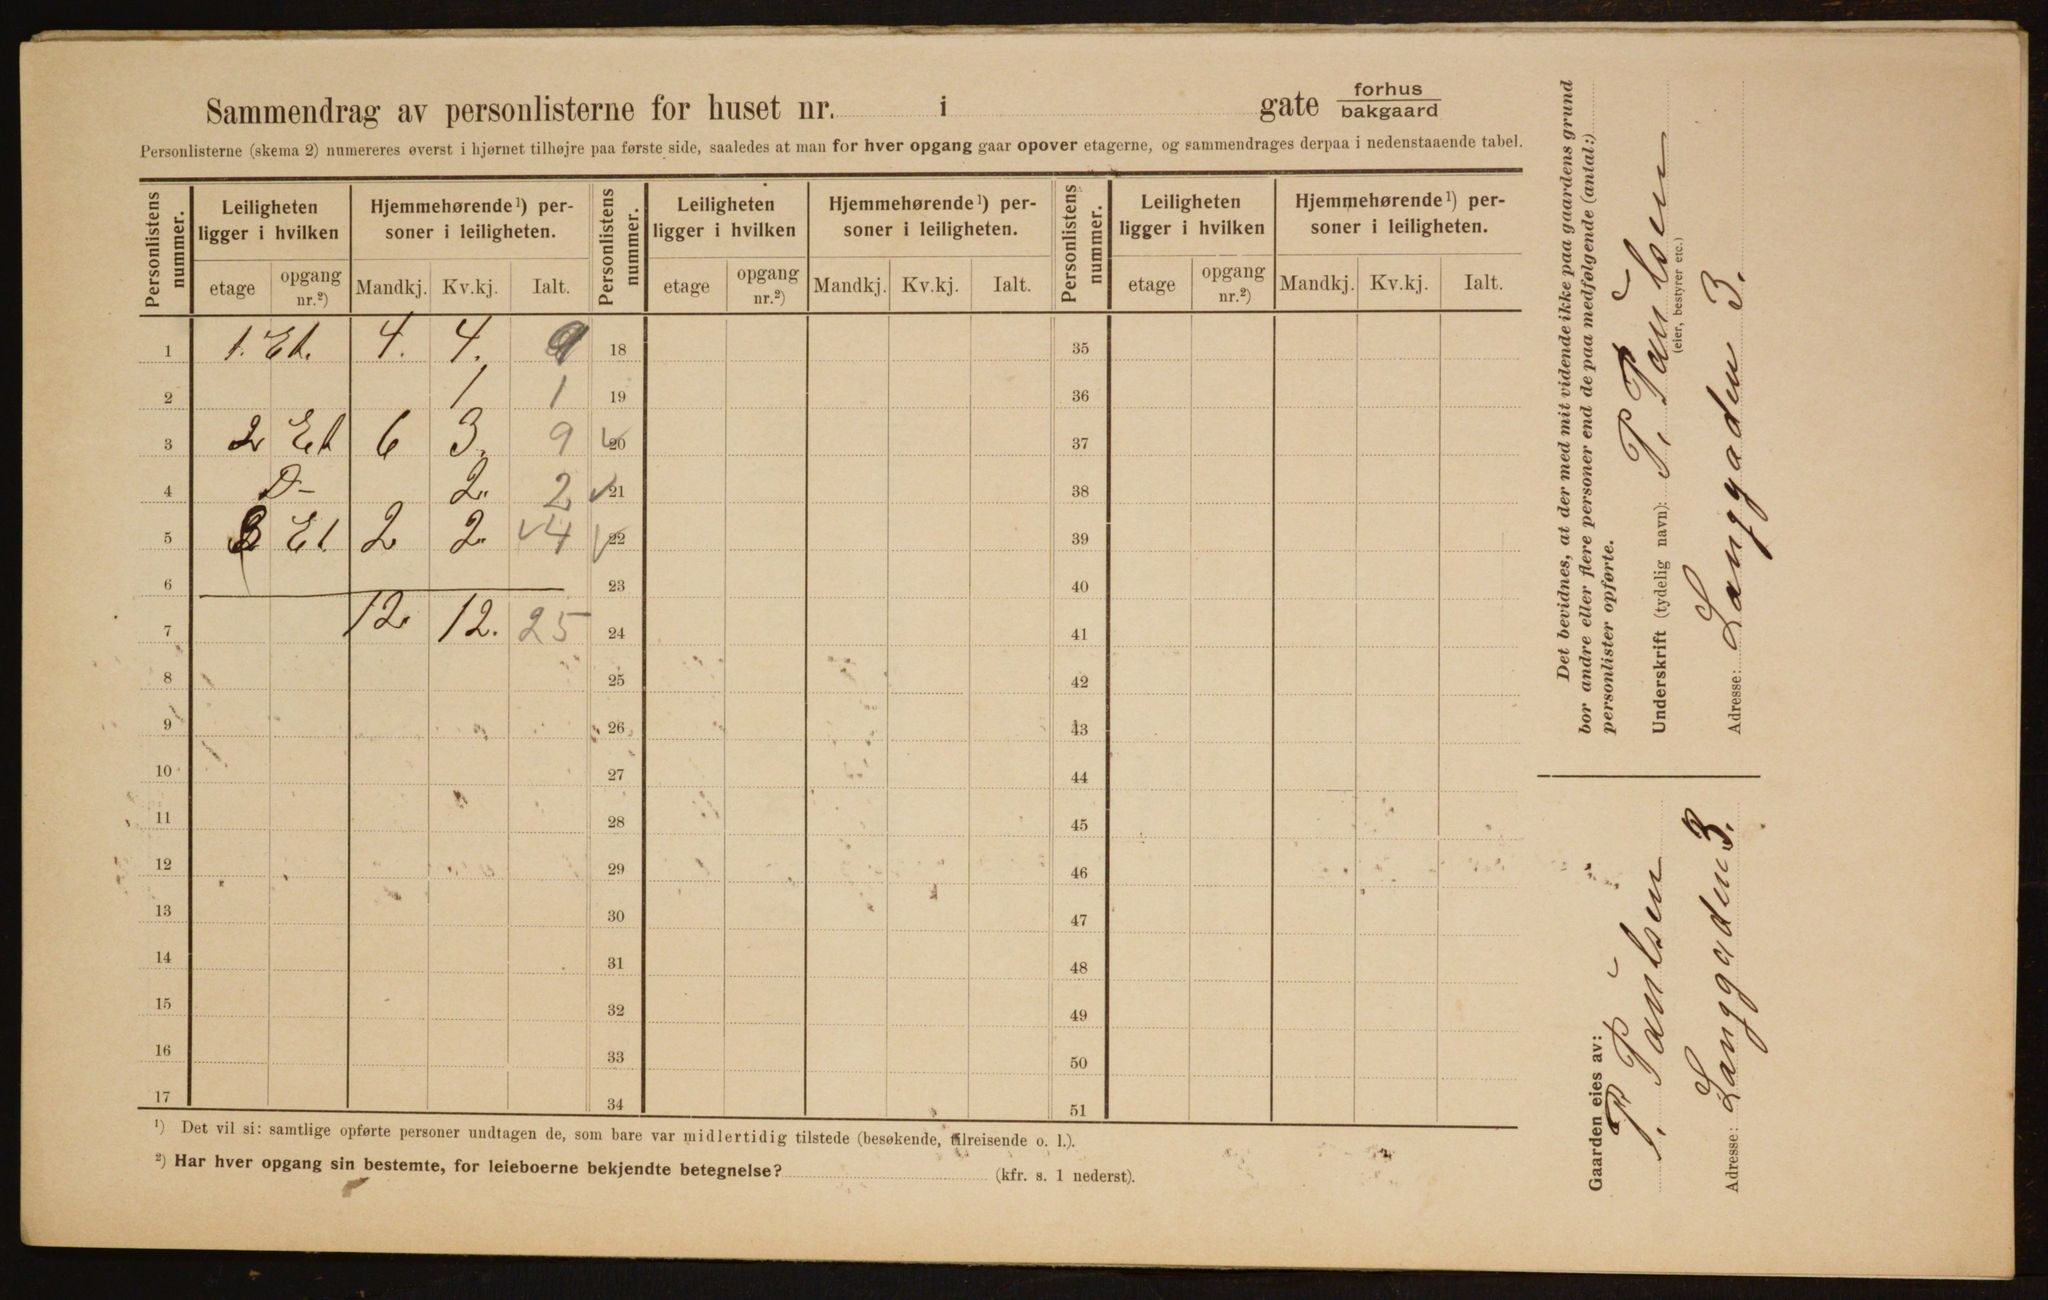 Sammendrag av personlisterne for huset nr. i gate forhus bakgaard
Personlisterne (skema 2) numereres øverst i hjørnet tilhøjre paa første side, saaledes at man for hver opgang gaar opover etagerne, og sammendrages derpaa i nedenstaaende tabel.
Personlistens nummer. Leiligheten ligger i hvilken Hjemmehørende 1) personer i leiligheten. Personlistens nummer. Leiligheten ligger i hvilken Hjemmehørende 1) personer i leiligheten. Personlistens nummer. Leiligheten ligger i hvilken Hjemmehørende 1) personer i leiligheten.
etage opgang nr.2) Mandkj. Kv.kj. Ialt. etage opgang nr.2) Mandkj. Kv.kj. Ialt. etage opgang nr.2) Mandkj. Kv.kj. Ialt.
1 1. Et. 4. 4. 18 35
2 1 1 19 36
3 2 Et 6 3. 9 20 37
4 D- 2. 2 21 38
5 3 Et. 2 2. 4 22 39
6 23 40
7 12. 12. 25 24 41
8 25 42
9 26 43
10 27 44
11 28 45
12 29 46
13 30 47
14 31 48
15 32 49
16 33 50
17 34 51
1) Det vil si: samtlige opførte personer undtagen de, som bare var midlertidig tilstede (besøkende, tilreisende o. l.).
2) Har hver opgang sin bestemte, for leieboerne bekjendte betegnelse? (kfr. s. 1 nederst).
Det bevidnes, at der med mit vidende ikke paa gaardens grund
bor andre eller flere personer end de paa medfølgende (antal:)
personlister opførte.
Underskrift (tydelig navn): P. Paulsen
(eier, bestyrer etc.)
Adresse: Langgaden 3.
Gaarden eies av:
P. Paulsen
Adresse: Langgaden 3.